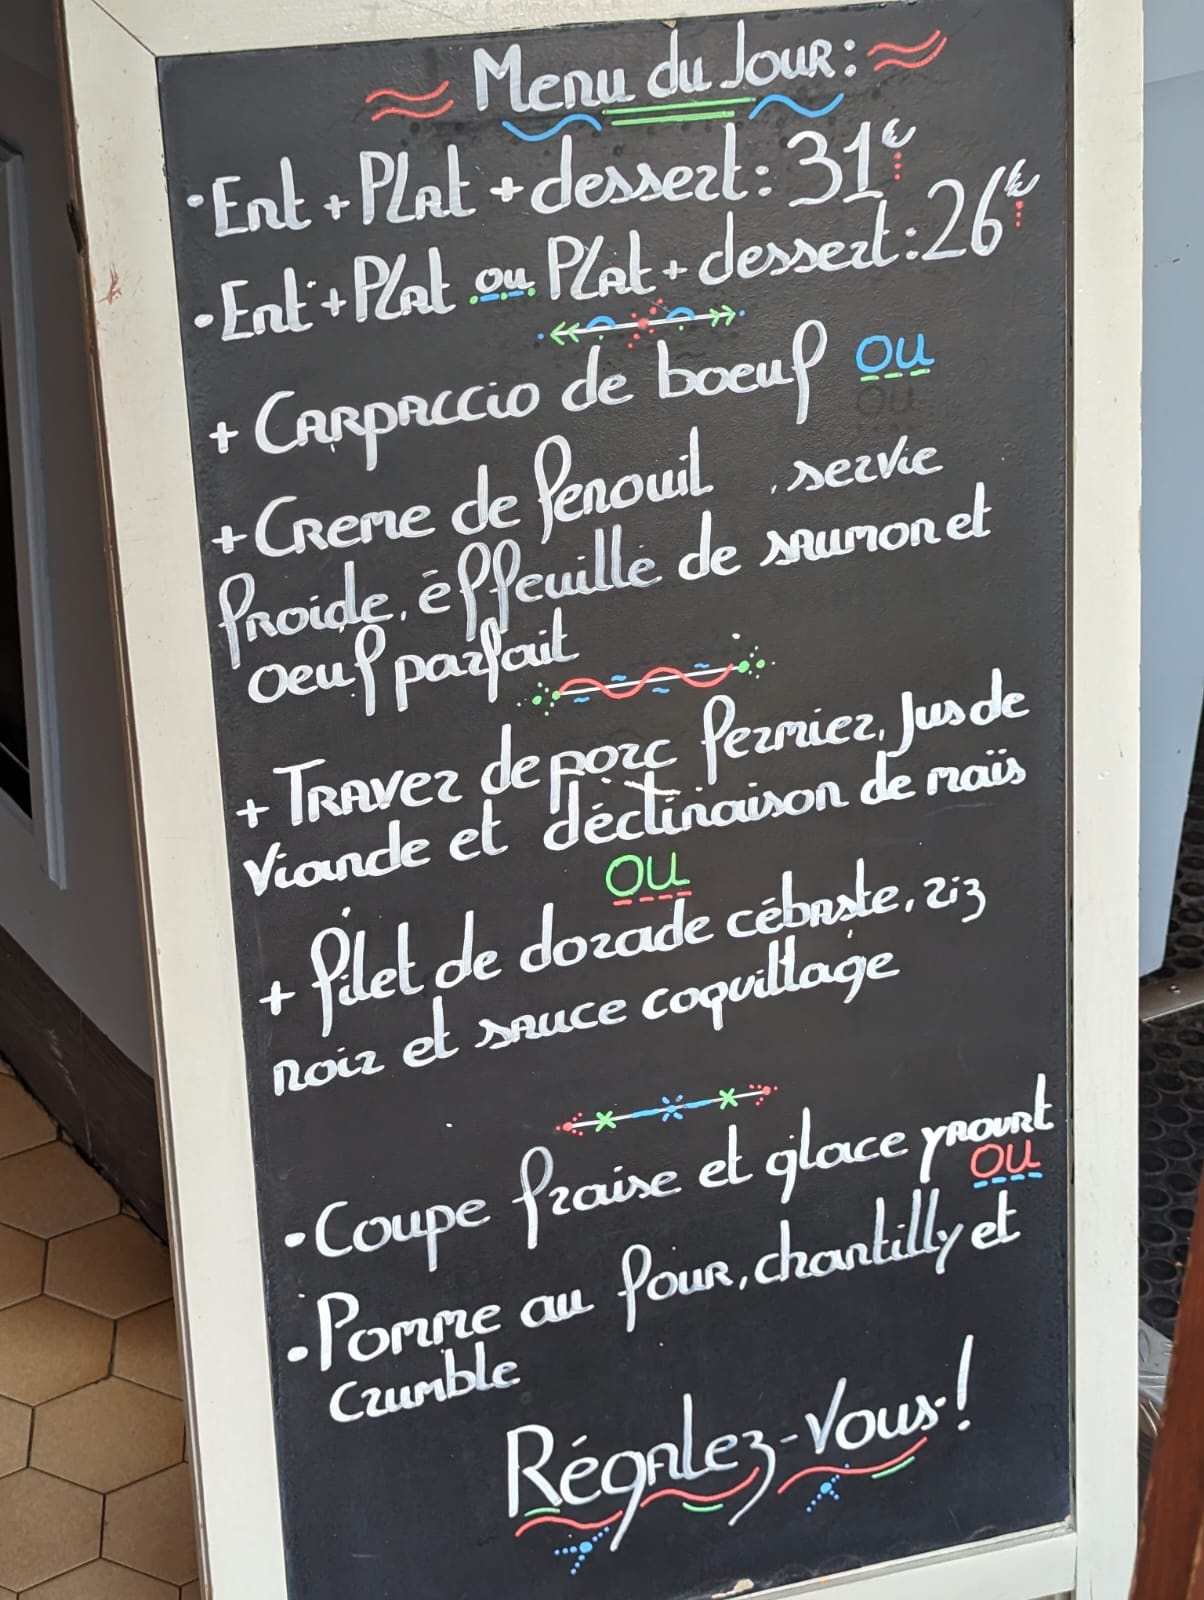 Menu du Jour:
• Ent + Plat + dessert: 31€
• Ent + Plat ou Plat + dessert: 26€
+ Carpaccio de boeuf ou
+ Creme de fenouil , servie
froide, éffeuillé de saumon et
oeuf parfait
+ Traver de porc fermier, Jus de
viande et déclinaison de maïs
ou
+ filet de dorade cébaste, riz
noir et sauce coquillage
• Coupe fraise et glace yaourt
ou
• Pomme au four, chantilly et
crumble
Régalez-vous !